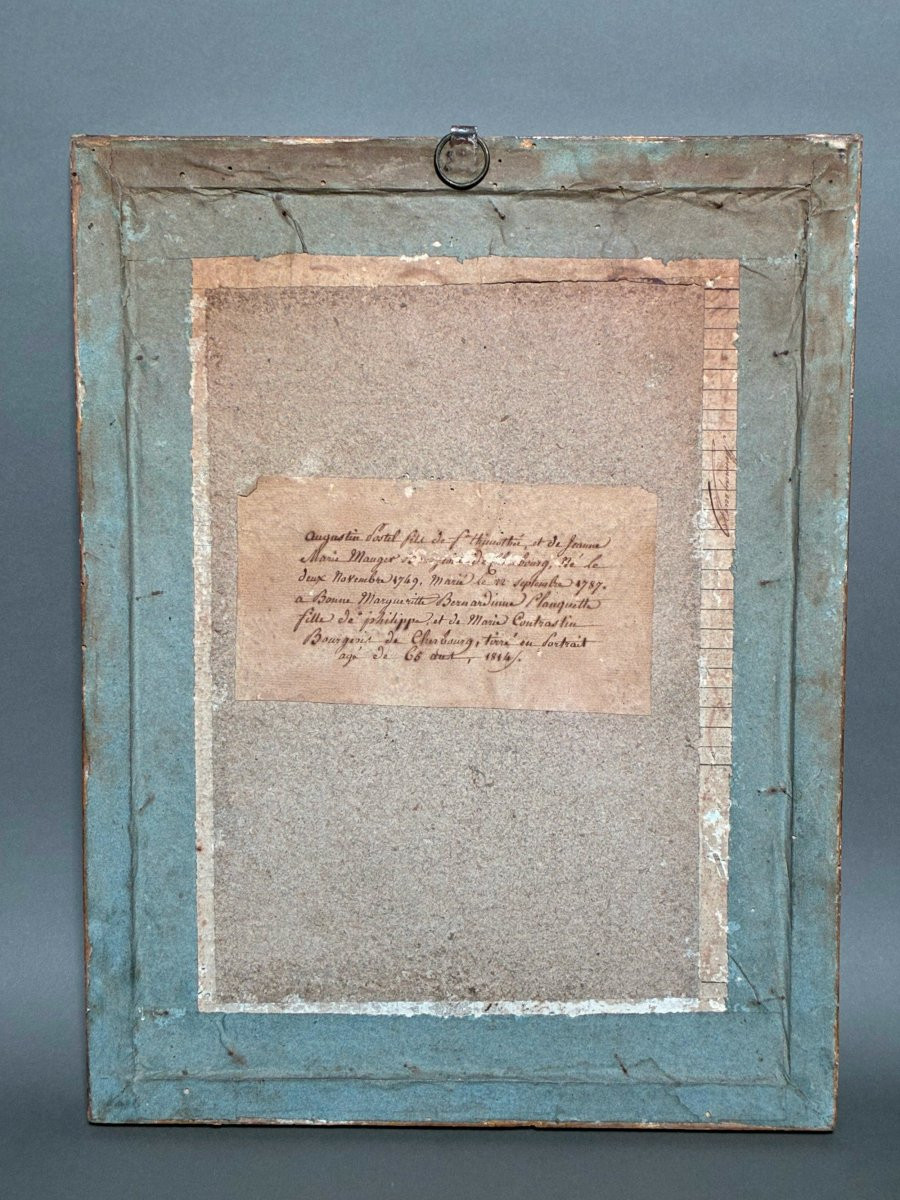 Augustin Postel fils de et de Jeanne
Marie Mauger de Cherbourg, Né le
deux Novembre 1749, Marié le 12 septembre 1787.
a Bonne Margueritte Bernardinne Planquette
fille de philippe et de Marie Contrastin
Bourgeois de Cherbourg, tirré en Portrait
agé de 65 ans, 1814.